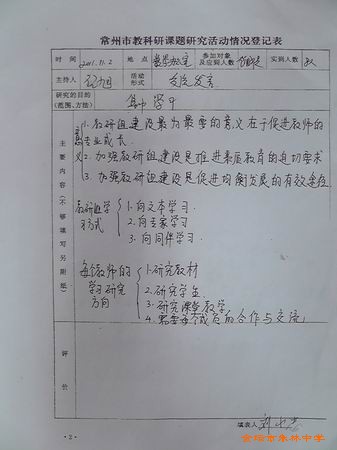 常州市教科研课题研究活动情况登记表
时间 2011.11.2 地点 参加对象及应到人数 实到人数
主持人 活动形式 交流发言
研究的目的(范围、方法) 集中学习
主要内容(不够填写另附纸)
意义
1. 教研组建设最为最要的意义在于促进教师的专业成长.
2. 加强教研组建设是推进素质教育的迫切要求
3. 加强教研组建设是促进均衡发展的有效途径
教研组学习方式
1. 向文本学习.
2. 向专家学习
3. 向同伴学习.
每个教师的学习研究方向
1. 研究教材
2. 研究学生
3. 研究课堂教学
4. 需要每个成员的合作与交流
评价
填表人
·2·